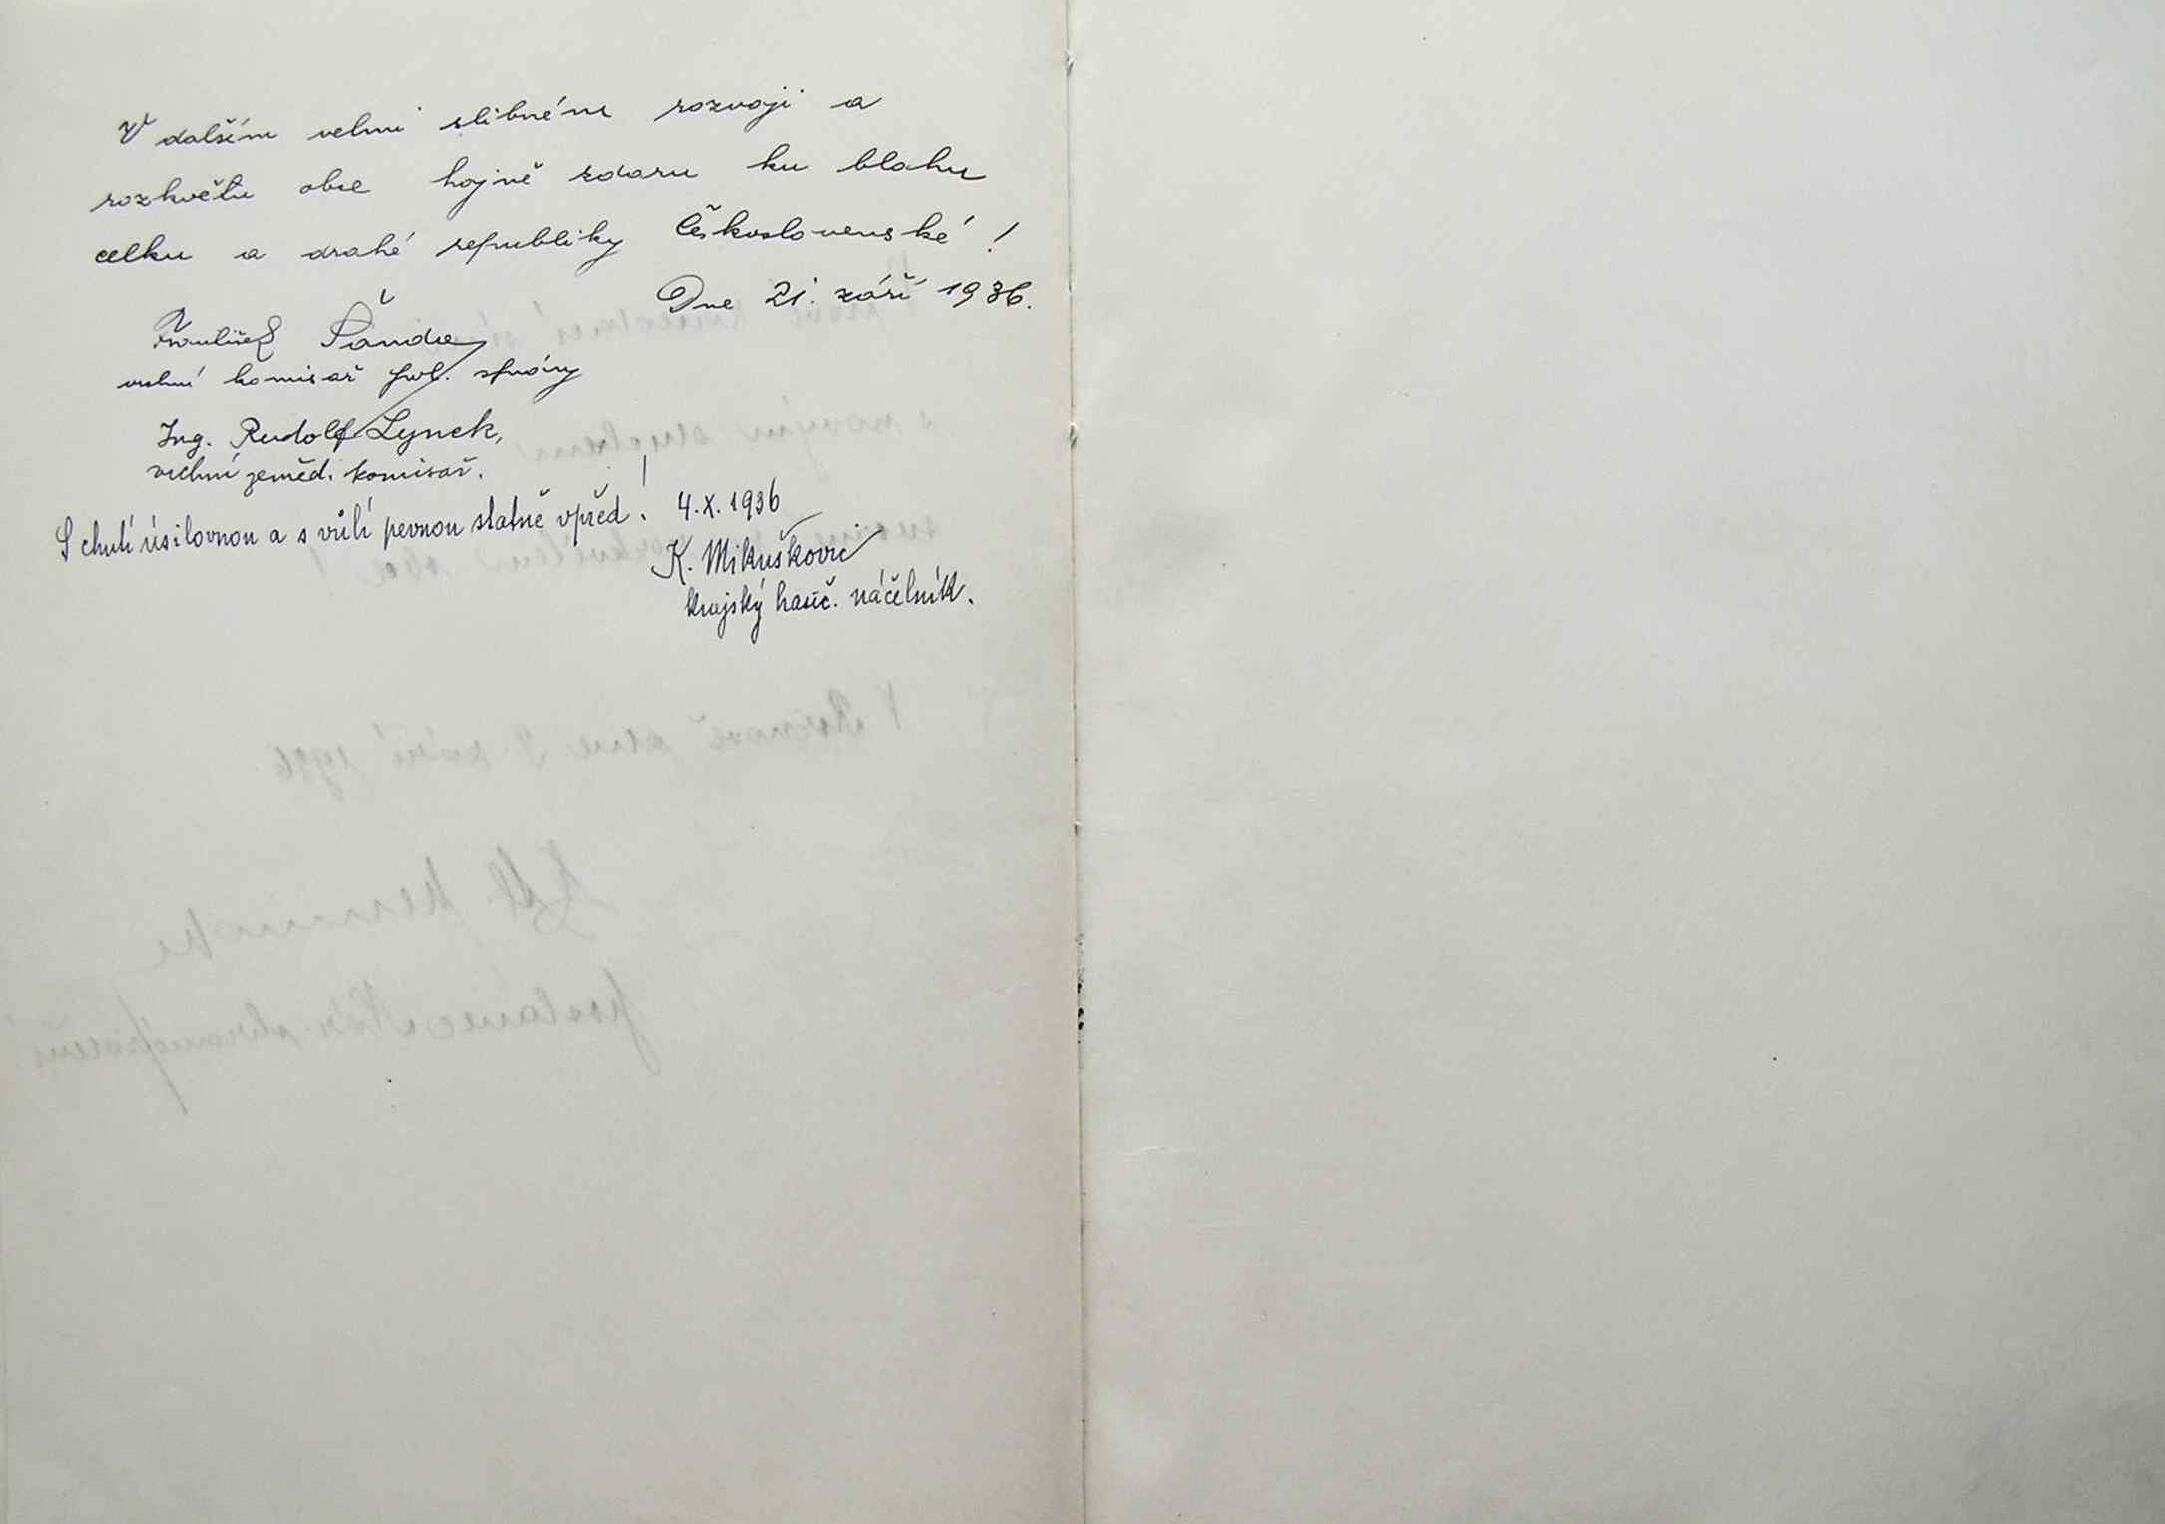 V dalším velmi slibném rozvoji a
rozkvětu obce hojně zdaru ku blahu
celku a drahé republiky Československé!
Dne 21. září 1936.
František Šanda
vrchní komisař pol. správy
Ing. Rudolf Lynek,
vrchní zeměd. komisař.
S chutí úsilovnou a s vůlí pevnou statně vpřed! 4.X.1936
K. Mikuškovic
krajský hasič. náčelník.